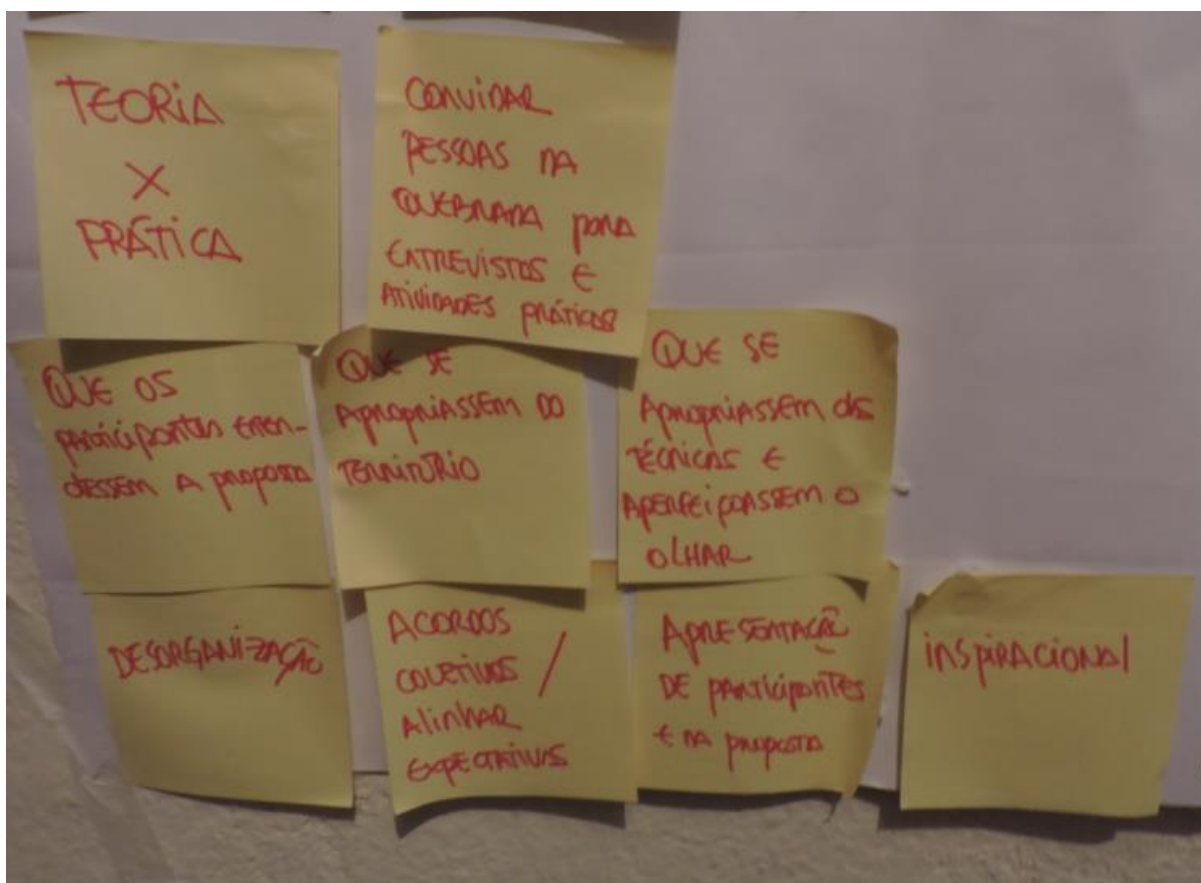 TEORIA
X
PRÁTICA
CONVIDAR
PESSOAS NA
QUEBRADA PARA
ENTREVISTAS E
ATIVIDADES PRÁTICAS
QUE OS
PARTICIPANTES ENTEN-
DESSEM A PROPOSTA
QUE SE
APROPRIASSEM DO
TERRITÓRIO
QUE SE
APROPRIASSEM DAS
TÉCNICAS E
APERFEIÇOASSEM O
OLHAR
DESORGANIZAÇÃO
ACORDOS
COLETIVOS /
ALINHAR
EXPECTATIVAS
APRESENTAÇÃO
DE PARTICIPANTES
E DA PROPOSTA
INSPIRACIONAL